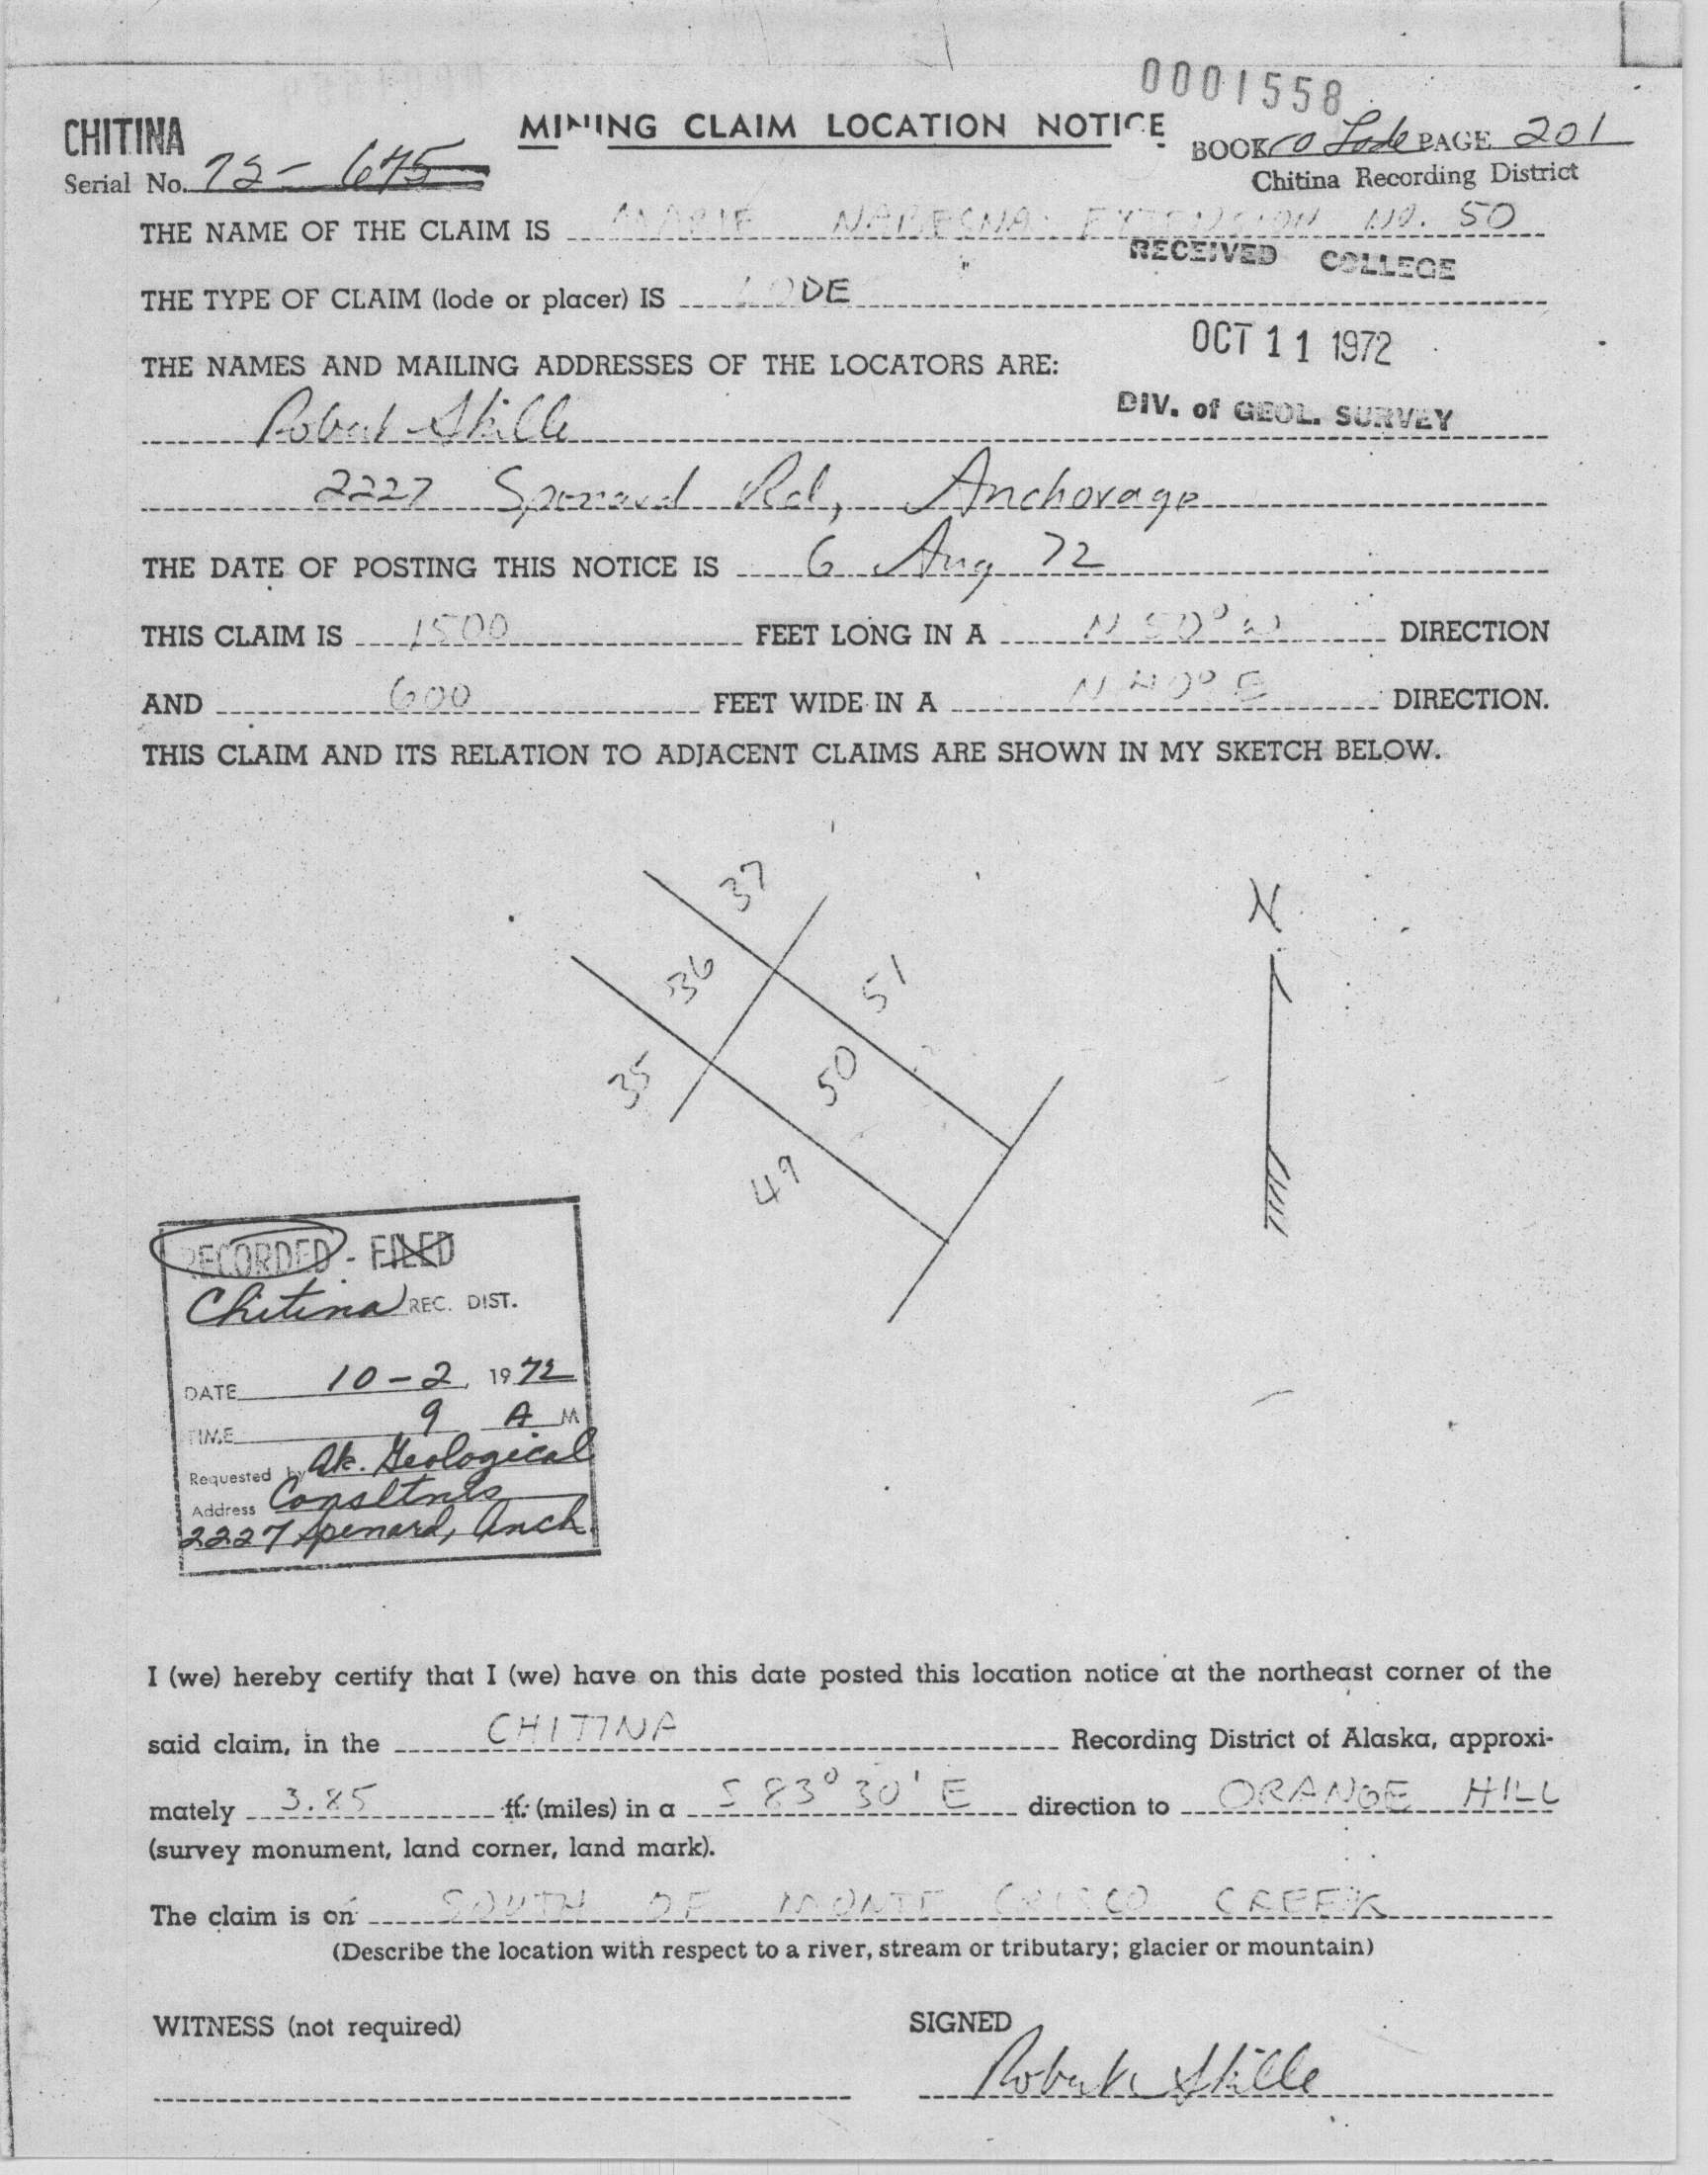 0001558
CHITINA
MINING CLAIM LOCATION NOTICE
BOOK 10 Lode PAGE 201
Serial No. 72- 675
Chitina Recording District
THE NAME OF THE CLAIM IS MARIE NABESNA EXTENSION NO. 50
RECEIVED COLLEGE
THE TYPE OF CLAIM (lode or placer) IS LODE
OCT 11 1972
THE NAMES AND MAILING ADDRESSES OF THE LOCATORS ARE:
DIV. of GEOL. SURVEY
Robert Skille
2227 Spenard Rd, Anchorage
THE DATE OF POSTING THIS NOTICE IS 6 Aug 72
THIS CLAIM IS 1500 FEET LONG IN A N 50° W DIRECTION
AND 600 FEET WIDE IN A N 40° E DIRECTION.
THIS CLAIM AND ITS RELATION TO ADJACENT CLAIMS ARE SHOWN IN MY SKETCH BELOW.
37
N
36
51
35
50
49
RECORDED - FILED
Chitina REC. DIST.
DATE 10-2, 1972
TIME 9 A M
Requested by Ak. Geological
Address Consltnts
2227 Spenard, Anch.
I (we) hereby certify that I (we) have on this date posted this location notice at the northeast corner of the
said claim, in the CHITINA Recording District of Alaska, approxi-
mately 3.85 ft. (miles) in a S 83° 30' E direction to ORANGE HILL
(survey monument, land corner, land mark).
The claim is on SOUTH OF MONTE CRISCO CREEK
(Describe the location with respect to a river, stream or tributary; glacier or mountain)
WITNESS (not required)
SIGNED
Robert Skille